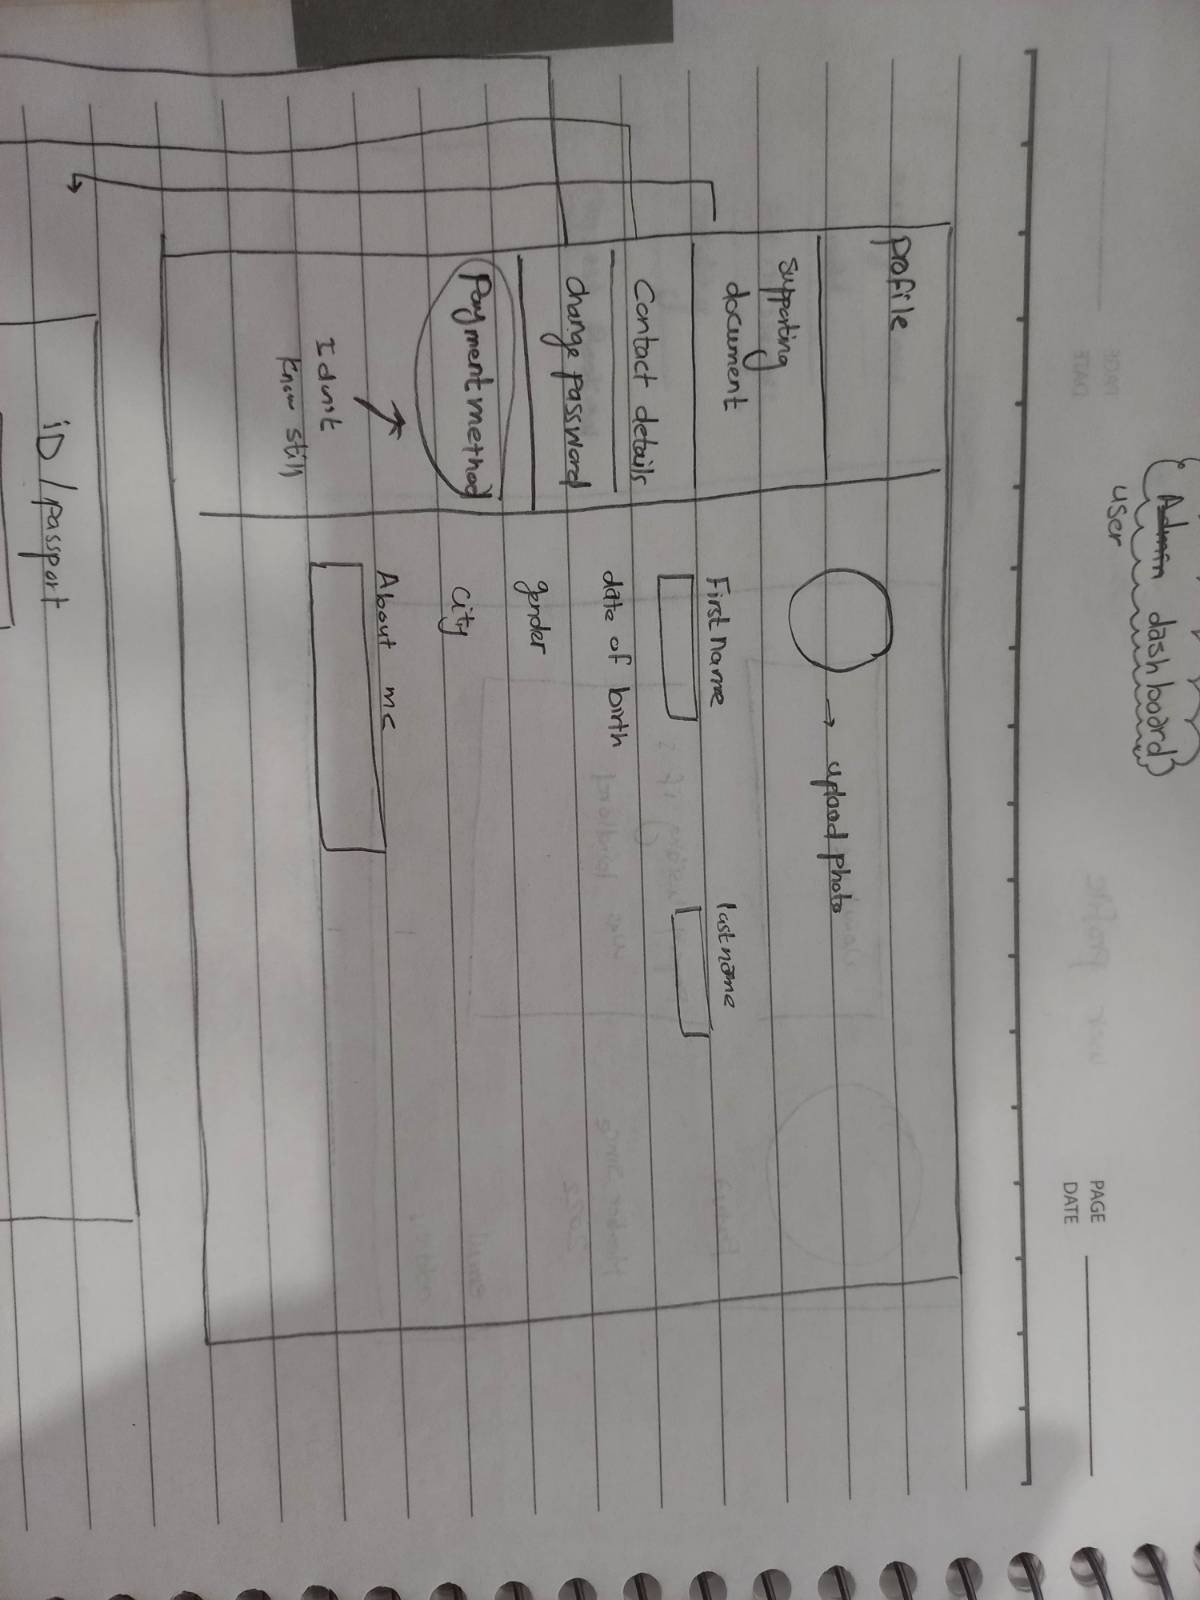 PAGE
DATE
{ Admin dashboard }
user
profile
supporting
document
Contact details
change password
Payment method
I dont
know still
→ upload photo
First name
last name
date of birth
gender
city
About me
iD / passport